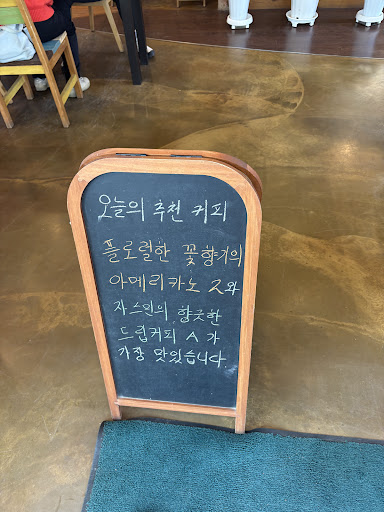 오늘의 추천 커피
플로럴한 꽃향기의
아메리카노 2와
자스민의 향긋한
드립커피 A 가
가장 맛있습니다